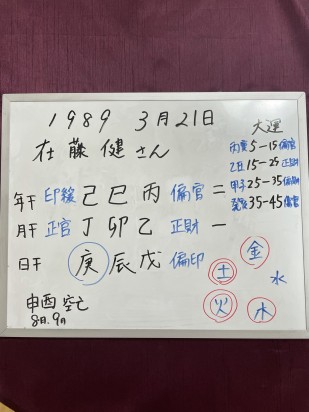 1989 3月21日
佐藤 健さん
大運
丙寅 5-15 偏官
乙丑 15-25 正財
甲子 25-35 偏財
癸亥 35-45 傷官
年干 印綬 己 巳 丙 偏官 =
月干 正官 丁 卯 乙 正財 −
日干 庚 辰 戊 偏印
金
土 水
火 木
申酉 空亡
8月.9月